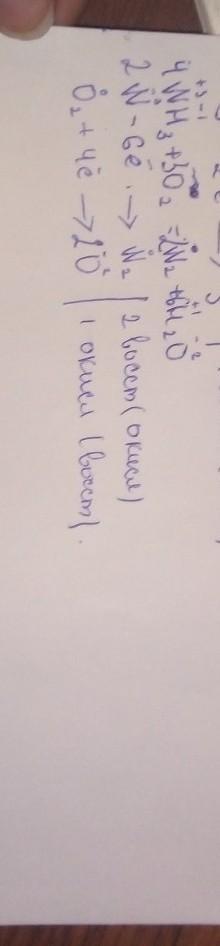 +3 -1
4NH₃+3O₂ =2N₂+6H₂O
2N - 6ē → N₂ | 2 восст (окисл)
O₂ + 4ē → 2O | 1 окисл (восст).